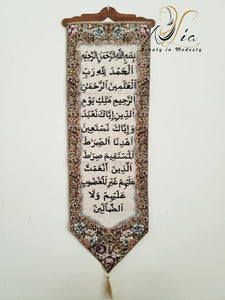 Via
Beauty in Modesty
بِسْمِ اللَّهِ الرَّحْمَٰنِ الرَّحِيمِ
الْحَمْدُ لِلَّهِ رَبِّ
الْعَالَمِينَ الرَّحْمَٰنِ
الرَّحِيمِ مَالِكِ يَوْمِ
الدِّينِ إِيَّاكَ نَعْبُدُ
وَإِيَّاكَ نَسْتَعِينُ
اهْدِنَا الصِّرَاطَ
الْمُسْتَقِيمَ صِرَاطَ
الَّذِينَ أَنْعَمْتَ
عَلَيْهِمْ غَيْرِ الْمَغْضُوبِ
عَلَيْهِمْ وَلَا
الضَّالِّينَ